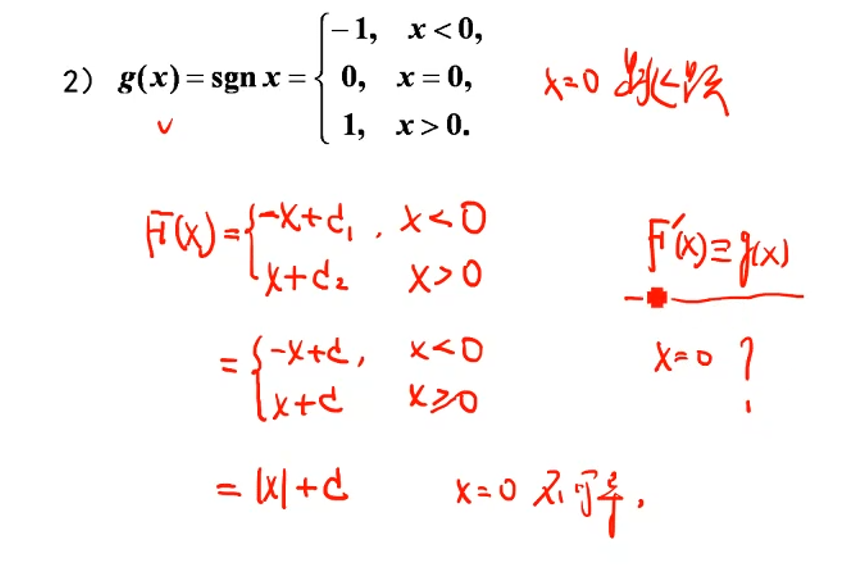 2) g(x) = sgn x = { -1, x < 0,
0, x = 0,
1, x > 0.
x=0 跳跃
F(x) = { -x+c₁, x<0
x+c₂ x>0
F'(x) ≡ g(x)
= { -x+c, x<0
x+c x≥0
x=0 ?
= |x|+c x=0 不可导.